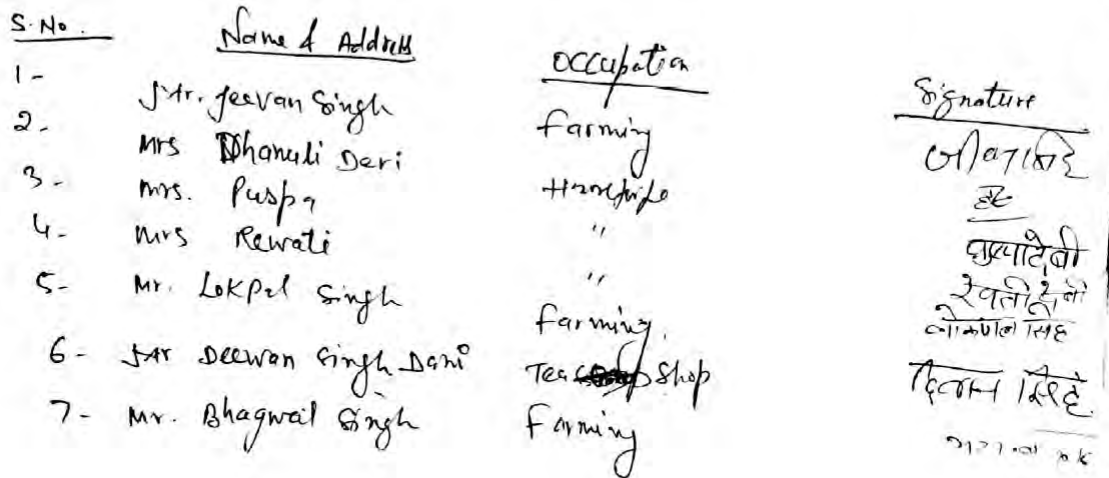 S.No. Name & Address Occupation Signature
1- Mr. Jeevan Singh Farming
2- Mrs Dhanuli Devi Housewife
3- Mrs. Puspa " पुष्पादेवी
4- Mrs Rewati " रेवती देवी
5- Mr. Lokpal Singh Farming लोकपाल सिंह
6- Mr Deewan Singh Dani Tea Shop दिवान सिंह
7- Mr. Bhagwat Singh Farming